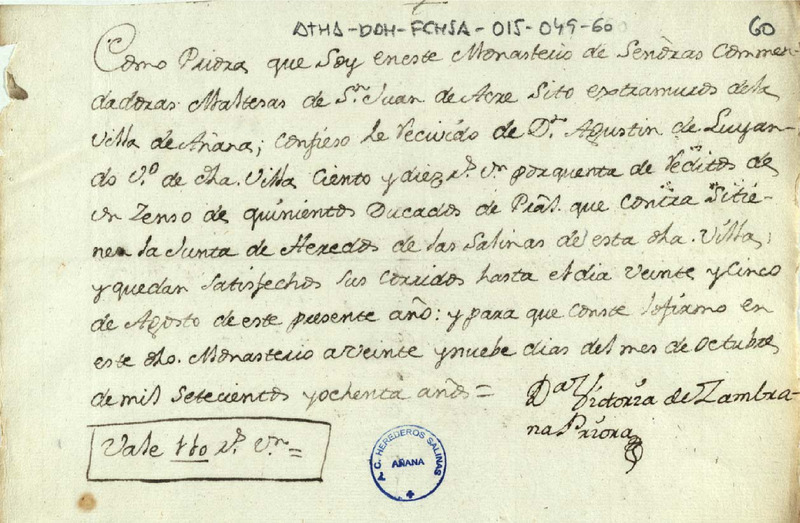 ATHA-DAH-FCHSA-015-049-60
60
Como Priora que soy eneste Monasterio de Senoras Commen-
dadoras Maltesas de Sn. Juan de Acre Sito extramuros dela
Villa de Añana; Confieso he Recivido de Dn. Agustin de Luyan-
do Vº de dha. Villa Ciento y diez rs. vn porquenta de Reditos de
un Zenso de quinientos Ducados de Pral. que contra si tie-
nen la Junta de Heredos de las Salinas de esta dha. Villa;
y quedan satisfechos sus corridos hasta el dia veinte y Cinco
de Agosto de este presente año: y para que conste lo firmo en
este dho. Monasterio a veinte y nuebe dias del mes de Octubre
de mil setecientos y ochenta años =
Da. Victoria de Zambra-
na Priora
Vale 110 rs. vn. =
A.C. HEREDEROS SALINAS
AÑANA